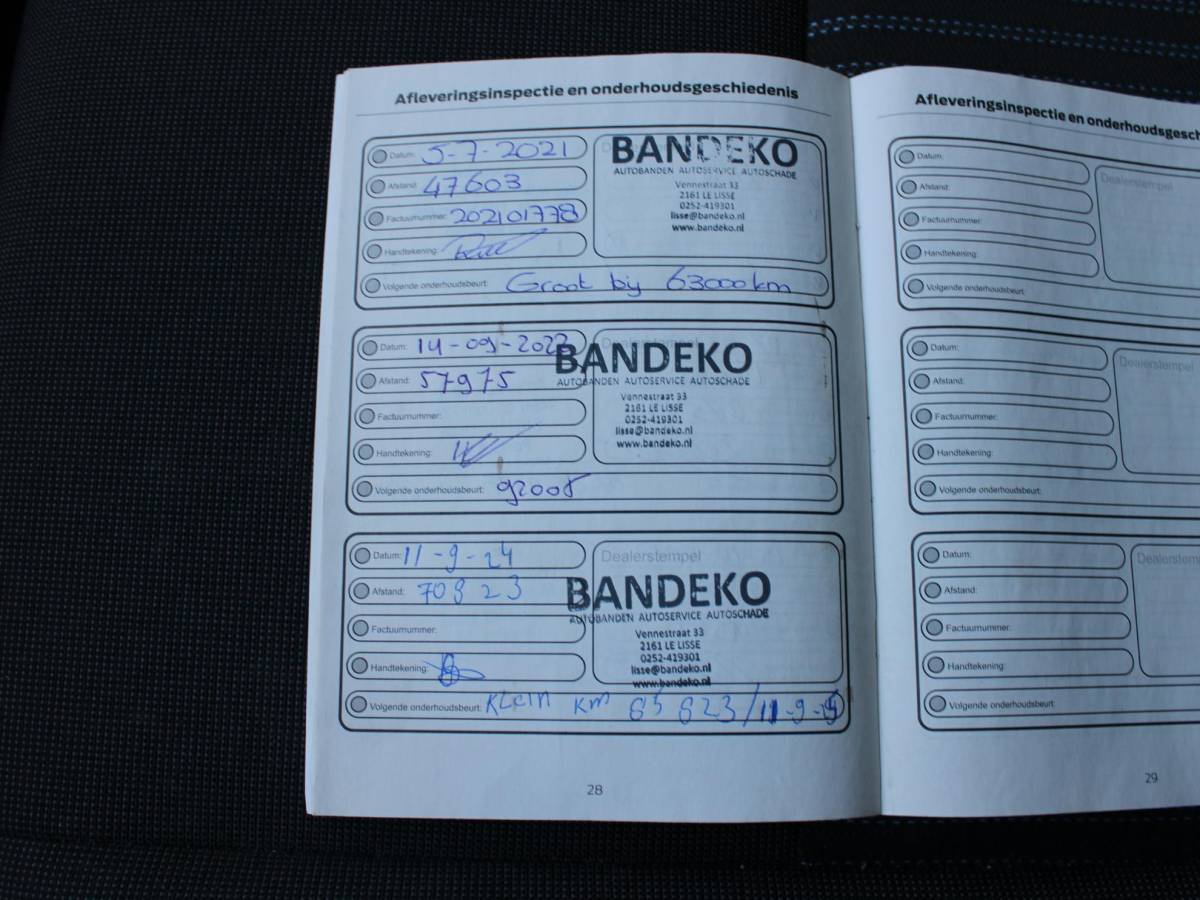 Afleveringsinspectie en onderhoudsgeschiedenis
Datum: 5-7-2021
Afstand: 47603
Factuurnummer: 202101778
Handtekening:
Volgende onderhoudsbeurt: Groot bij 63000km
BANDEKO
AUTOBANDEN AUTOSERVICE AUTOSCHADE
Vennestraat 33
2161 LE LISSE
0252-419301
lisse@bandeko.nl
www.bandeko.nl
Datum: 14-09-2022
Afstand: 57975
Factuurnummer:
Handtekening:
Volgende onderhoudsbeurt: groot
BANDEKO
AUTOBANDEN AUTOSERVICE AUTOSCHADE
Vennestraat 33
2161 LE LISSE
0252-419301
lisse@bandeko.nl
www.bandeko.nl
Datum: 11-9-24
Afstand: 70823
Factuurnummer:
Handtekening:
Volgende onderhoudsbeurt: Klein km 623/11-9-
Dealerstempel
BANDEKO
AUTOBANDEN AUTOSERVICE AUTOSCHADE
Vennestraat 33
2161 LE LISSE
0252-419301
lisse@bandeko.nl
www.bandeko.nl
28
Afleveringsinspectie en onderhoudsgesch
Datum:
Afstand:
Factuurnummer:
Handtekening:
Volgende onderhoudsbeurt:
Dealerstempel
Datum:
Afstand:
Factuurnummer:
Handtekening:
Volgende onderhoudsbeurt:
Dealerstempel
Datum:
Afstand:
Factuurnummer:
Handtekening:
Volgende onderhoudsbeurt:
Dealerstemp
29